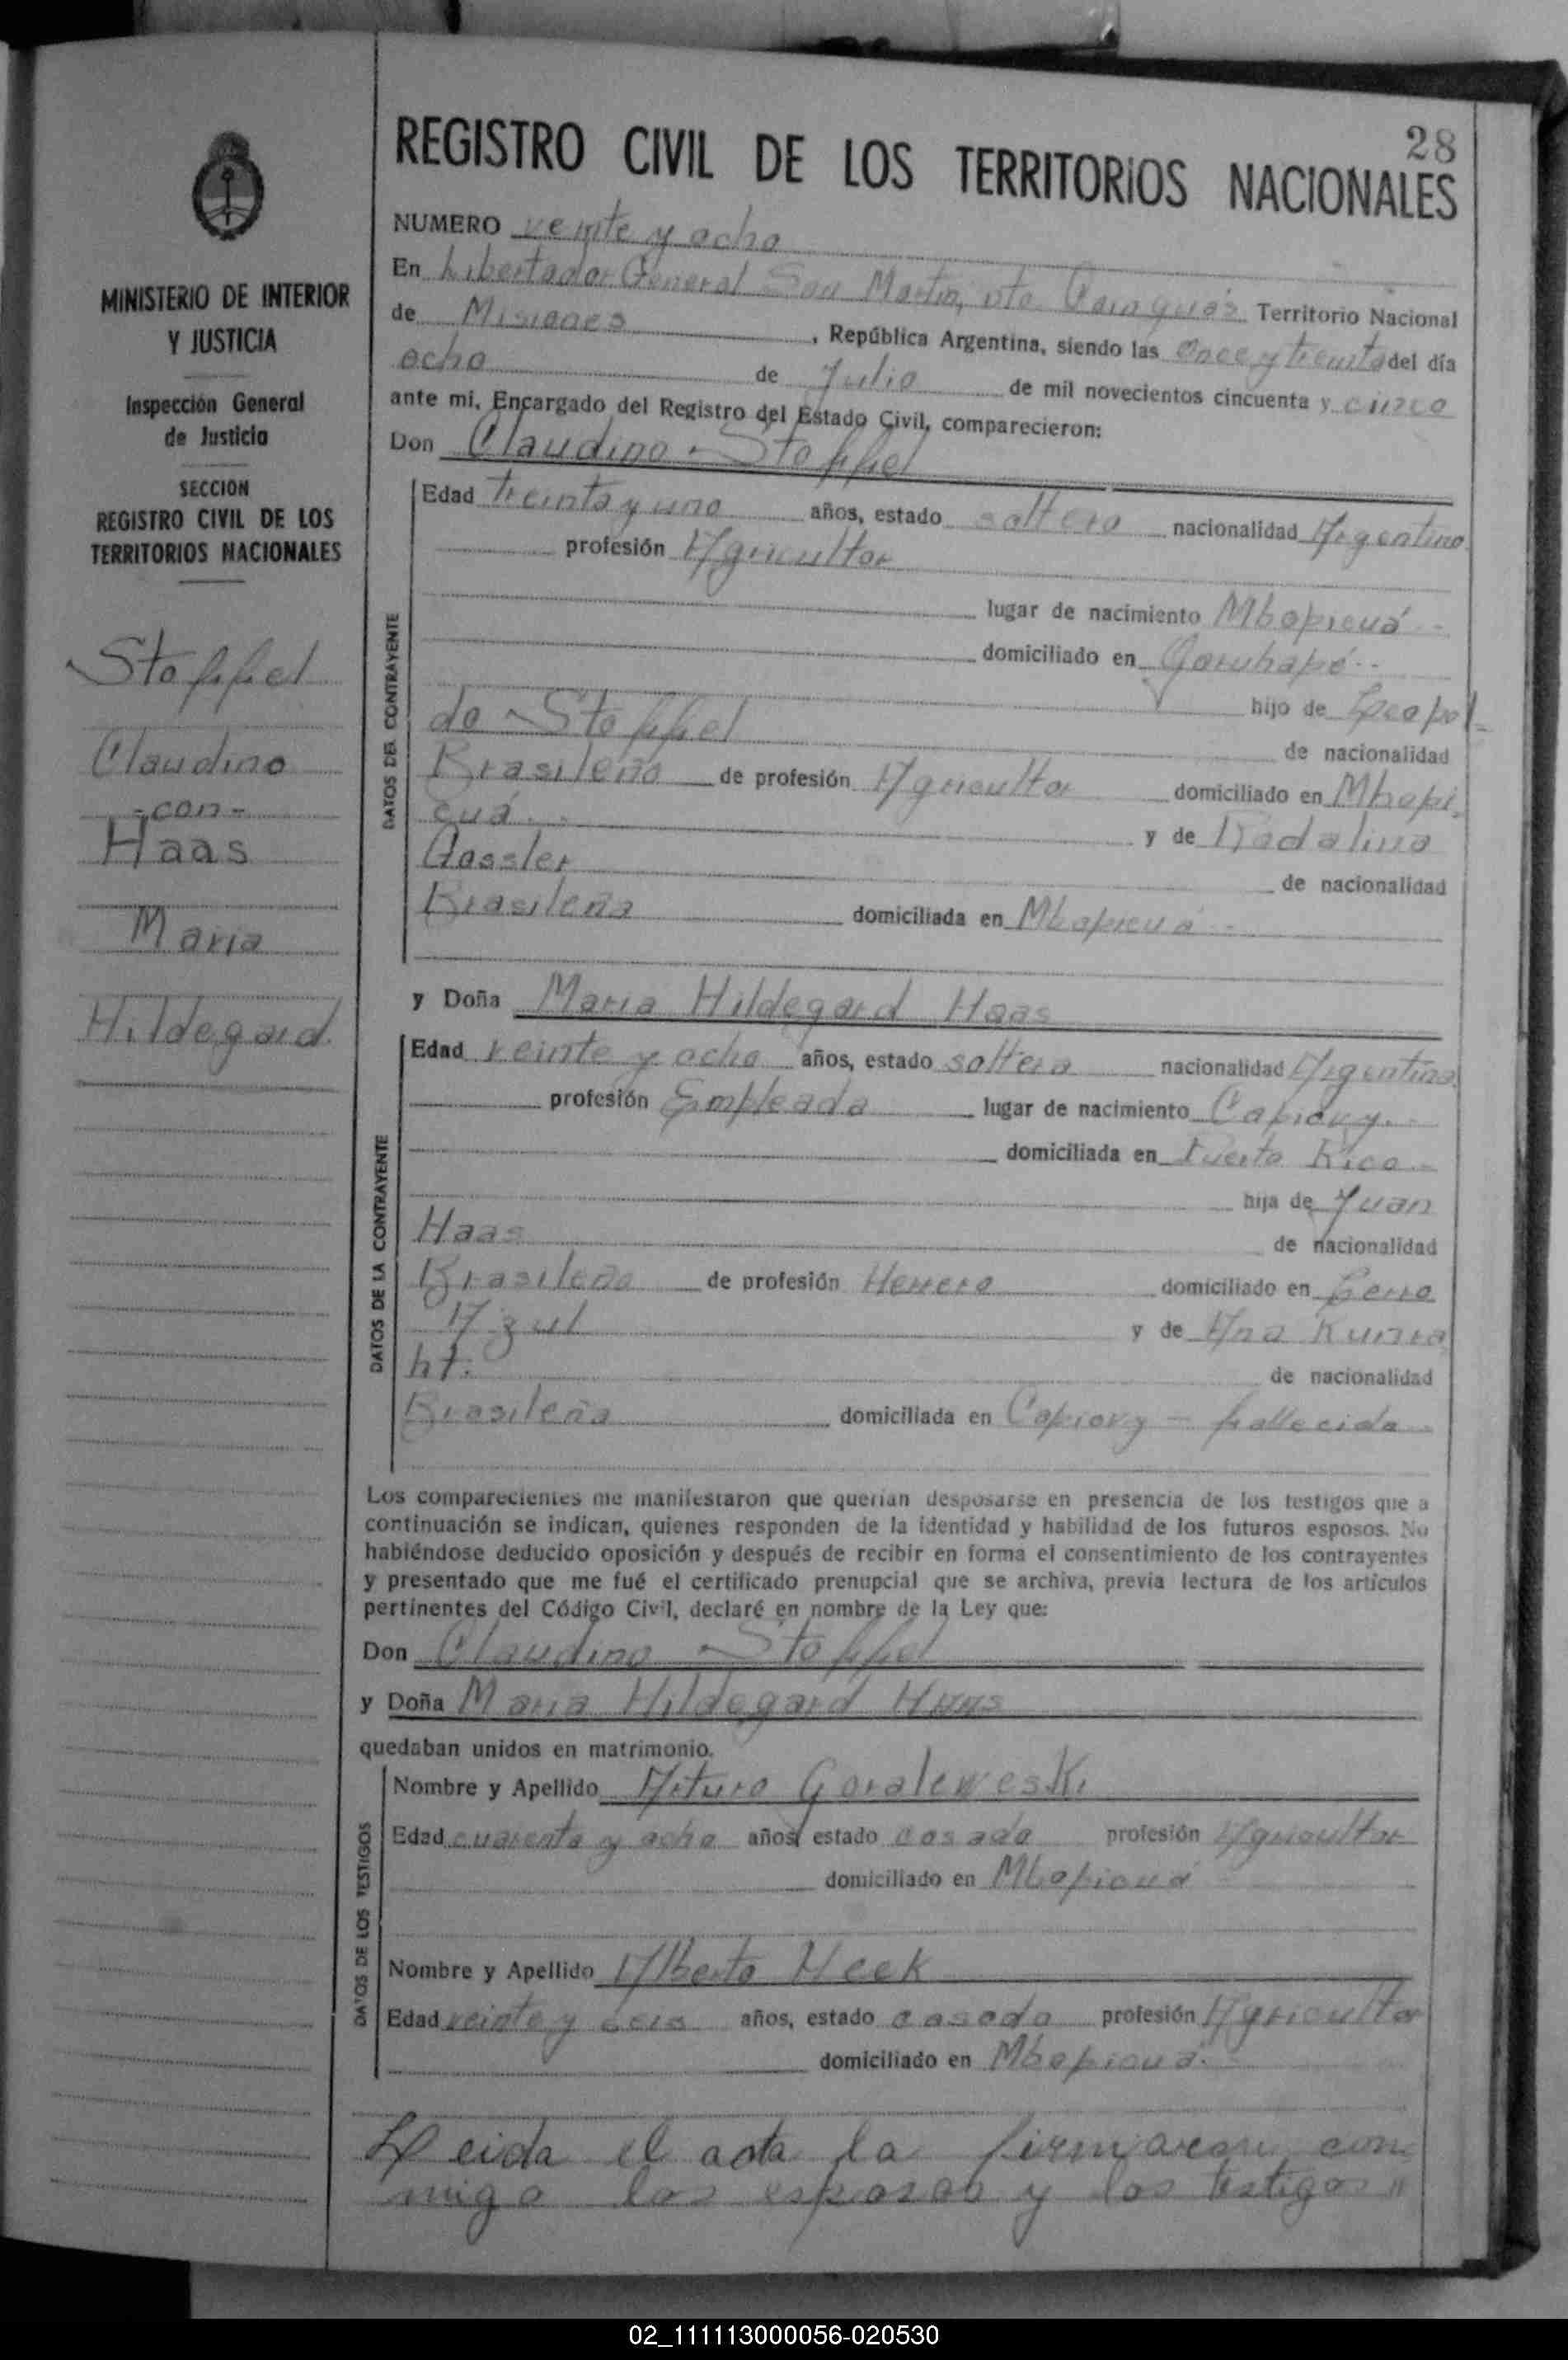 28
REGISTRO CIVIL DE LOS TERRITORIOS NACIONALES
MINISTERIO DE INTERIOR
Y JUSTICIA
Inspección General
de Justicia
SECCION
REGISTRO CIVIL DE LOS
TERRITORIOS NACIONALES
Stoffel
Claudino
-con-
Haas
Maria
Hildegard
NUMERO veinte y ocho
En Libertador General San Martín, dto. Cainguás Territorio Nacional
de Misiones, República Argentina, siendo las once y treinta del día
ocho de Julio de mil novecientos cincuenta y cinco
ante mi, Encargado del Registro del Estado Civil, comparecieron:
Don Claudino Stoffel
DATOS DEL CONTRAYENTE
Edad treinta y uno años, estado soltero nacionalidad Argentino
profesión Agricultor
lugar de nacimiento Mbopicuá
domiciliado en Garuhapé
hijo de Leopol-
do Stoffel de nacionalidad
Brasileño de profesión Agricultor domiciliado en Mbopi-
cuá. y de
Gassler de nacionalidad
Brasileña domiciliada en Mbopicuá
y Doña Maria Hildegard Haas
DATOS DE LA CONTRAYENTE
Edad veinte y ocho años, estado soltera nacionalidad Argentina
profesión Empleada lugar de nacimiento Capiovy
domiciliada en Puerto Rico
hija de Juan
Haas de nacionalidad
Brasileño de profesión Herrero domiciliado en Cerro
Azul y de Ana
ht. de nacionalidad
Brasileña domiciliada en Capiovy - fallecida
Los comparecientes me manifestaron que querían desposarse en presencia de los testigos que a
continuación se indican, quienes responden de la identidad y habilidad de los futuros esposos. No
habiéndose deducido oposición y después de recibir en forma el consentimiento de los contrayentes
y presentado que me fué el certificado prenupcial que se archiva, previa lectura de los artículos
pertinentes del Código Civil, declaré en nombre de la Ley que:
Don Claudino Stoffel
y Doña Maria Hildegard Haas
quedaban unidos en matrimonio.
DATOS DE LOS TESTIGOS
Nombre y Apellido Arturo Goraleweski
Edad cuarenta y ocho años, estado casado profesión Agricultor
domiciliado en Mbopicuá
Nombre y Apellido Alberto Heck
Edad veinte y seis años, estado casado profesión Agricultor
domiciliado en Mbopicuá.
Leida el acta la firmaron con
migo los esposos y los testigos"
02_111113000056-020530